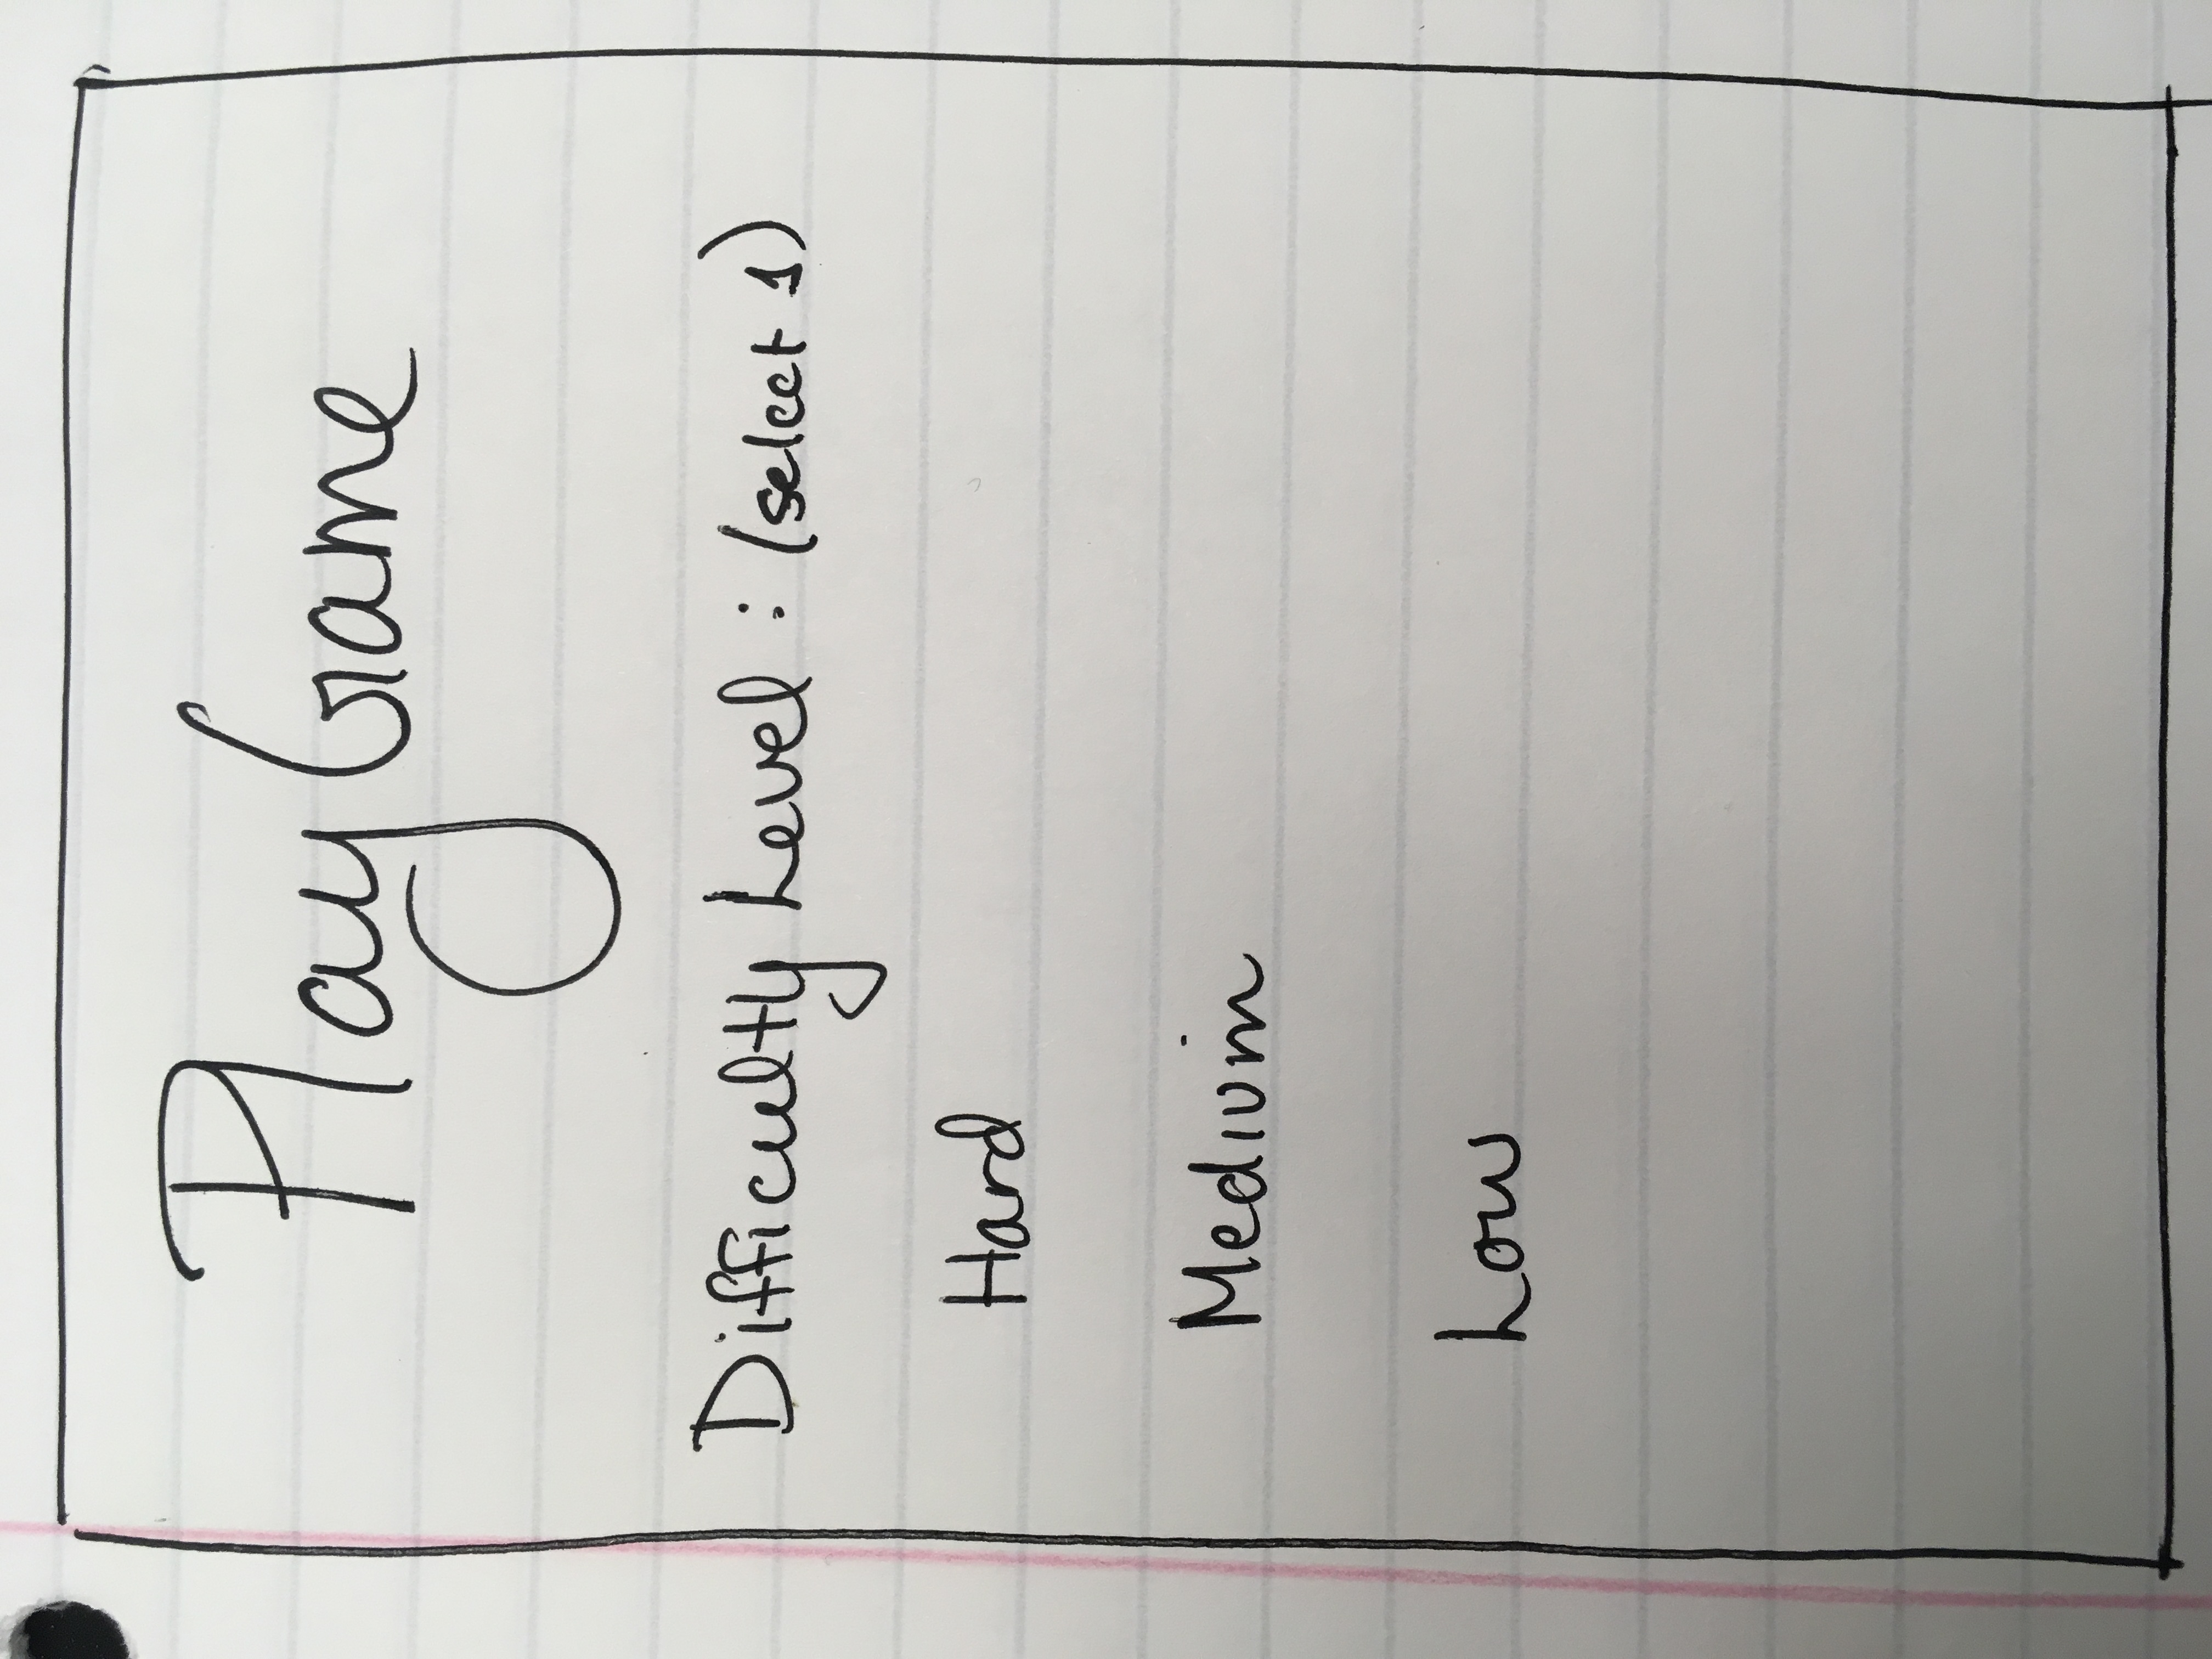 Play Game
Difficulty Level : (select 1)
Hard
Medium
Low